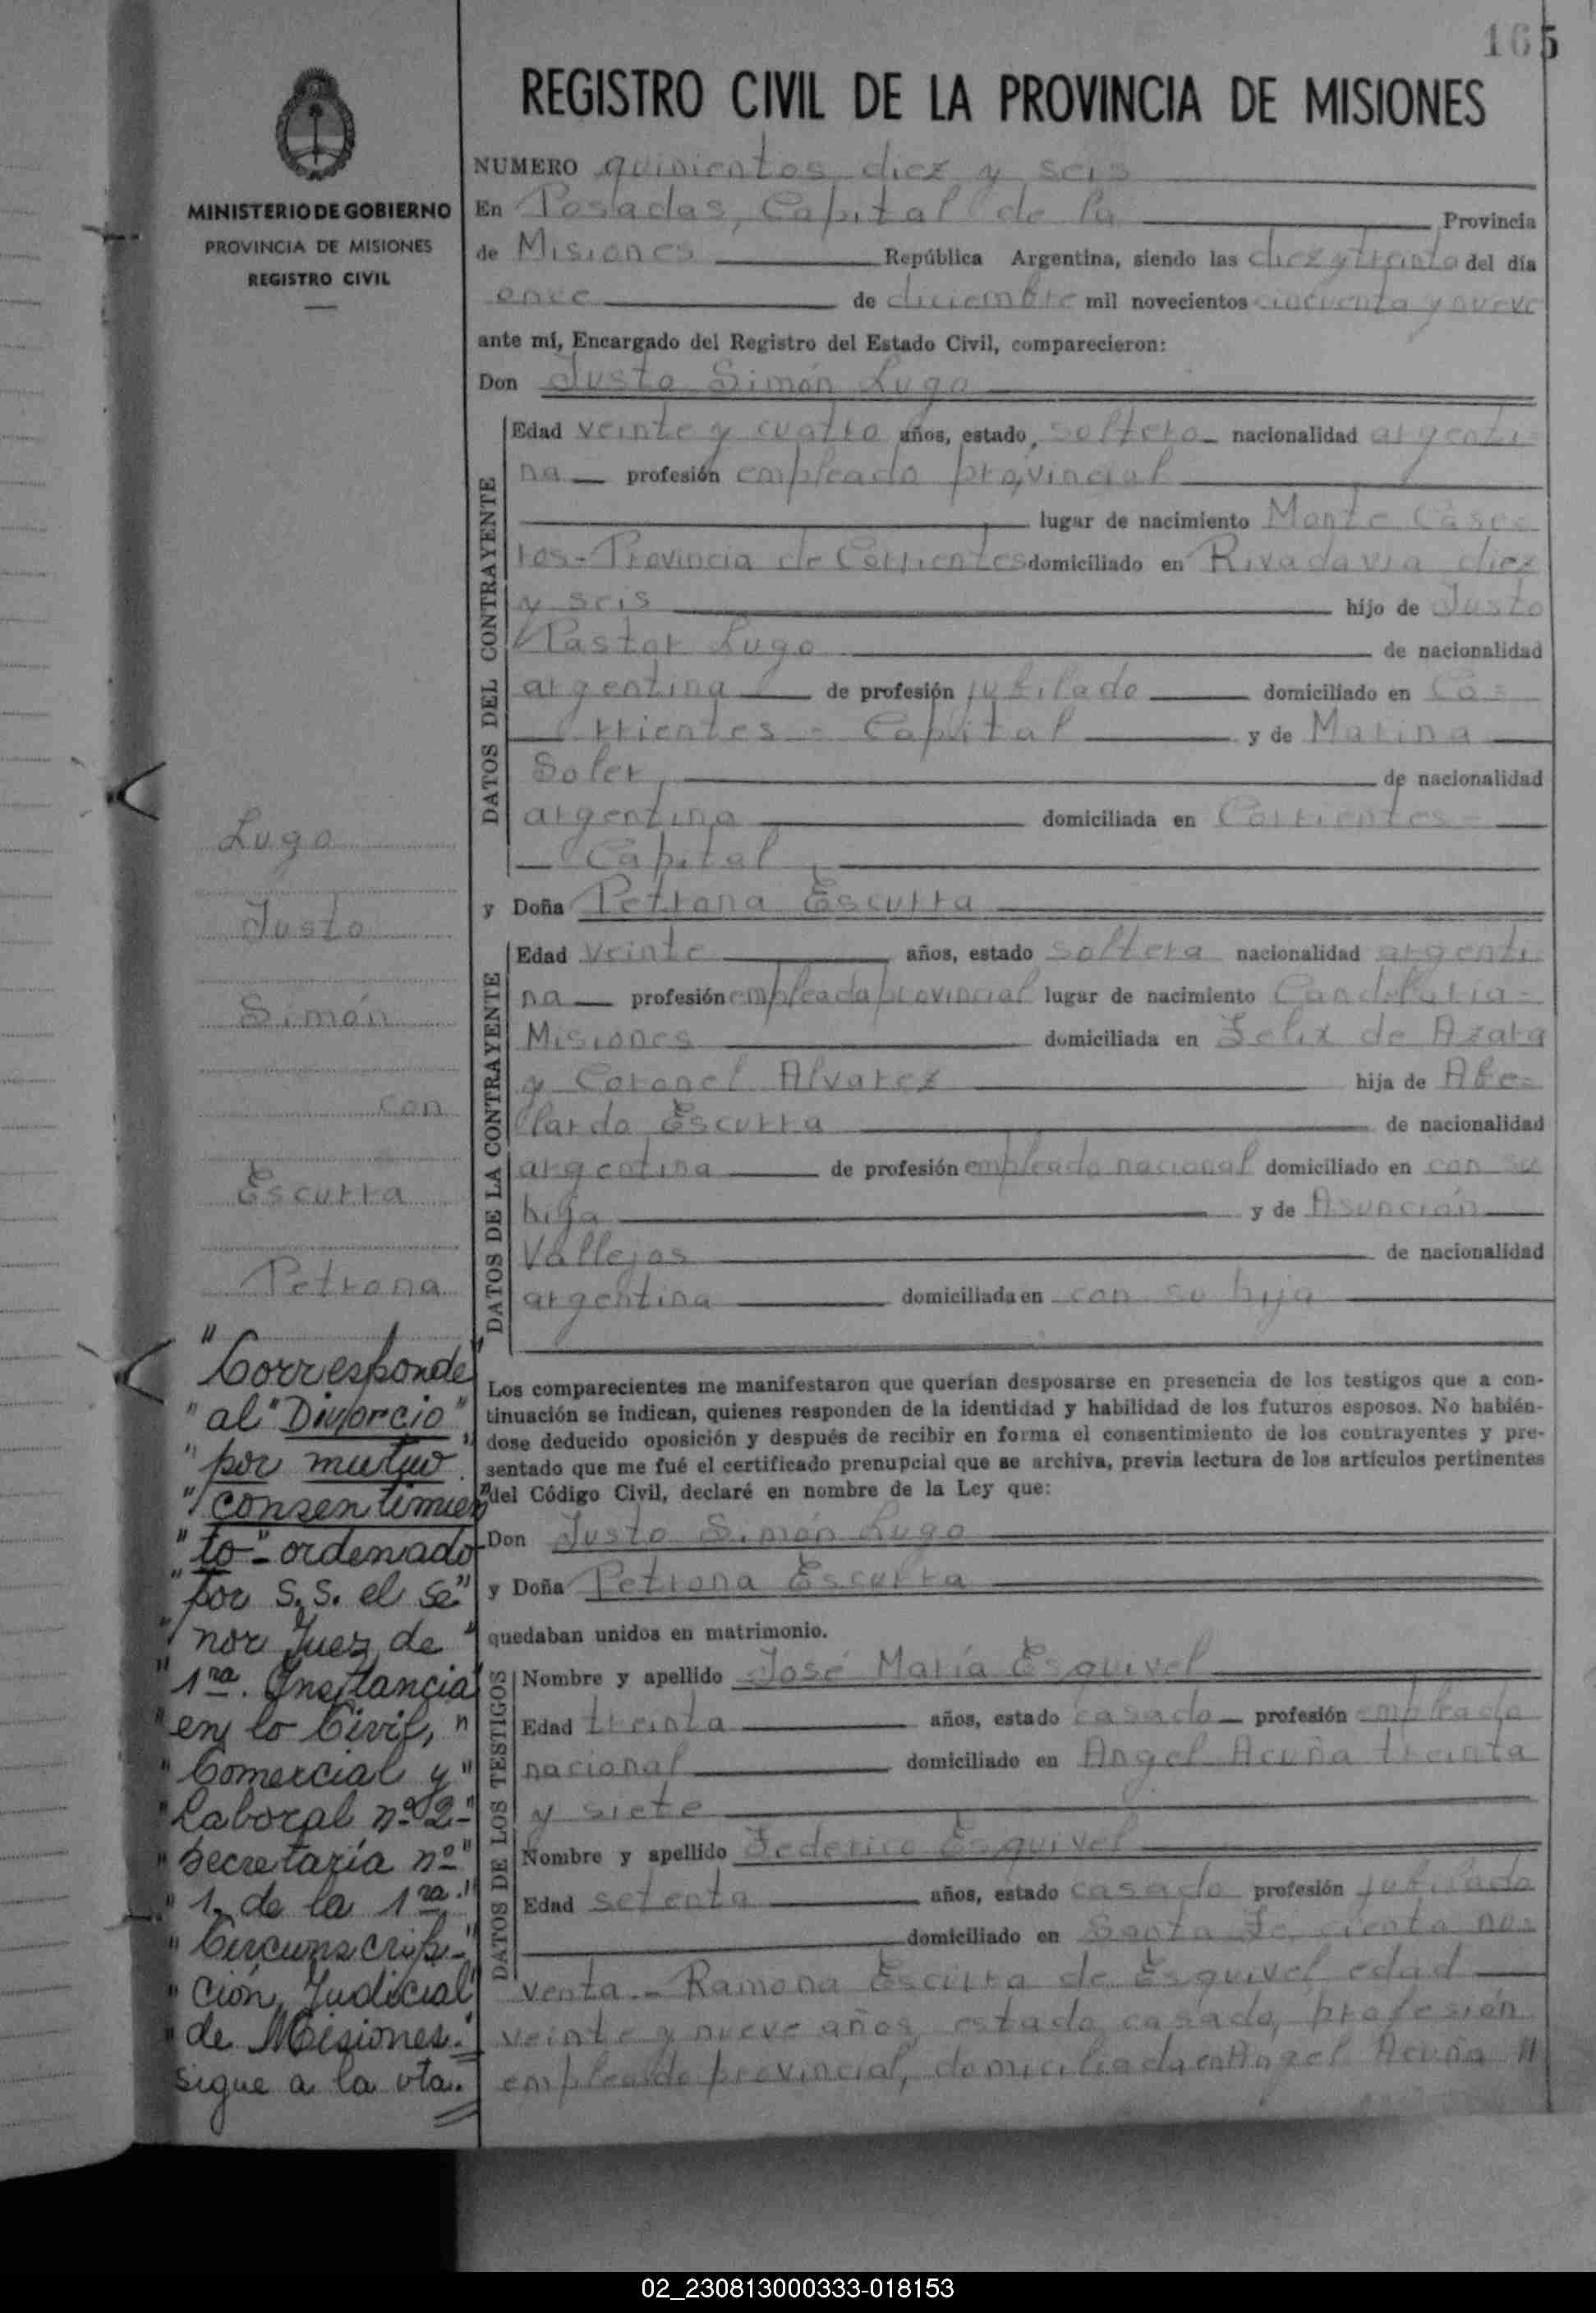 165
REGISTRO CIVIL DE LA PROVINCIA DE MISIONES
MINISTERIO DE GOBIERNO
PROVINCIA DE MISIONES
REGISTRO CIVIL
NUMERO quinientos diez y seis
En Posadas, Capital de la Provincia
de Misiones República Argentina, siendo las diez y treinta del día
once de diciembre mil novecientos cincuenta y nueve
ante mí, Encargado del Registro del Estado Civil, comparecieron:
Don Justo Simón Lugo
DATOS DEL CONTRAYENTE
Edad veinte y cuatro años, estado, soltero nacionalidad argenti=
na profesión empleado provincial
lugar de nacimiento Monte Case=
ros - Provincia de Corrientes domiciliado en Rivadavia diez
y seis hijo de Justo
Pastor Lugo de nacionalidad
argentina de profesión jubilado domiciliado en Co=
rrientes - Capital y de Marina
Soler, de nacionalidad
argentina domiciliada en Corrientes -
Capital,
y Doña Petrona Escurra
DATOS DE LA CONTRAYENTE
Edad veinte años, estado soltera nacionalidad argenti
na profesión empleada provincial lugar de nacimiento Candelaria -
Misiones domiciliada en Felix de Azara
y Coronel Alvarez hija de Abe=
lardo Escurra de nacionalidad
argentina de profesión empleado nacional domiciliado en con su
hija y de Asunción
Vallejos de nacionalidad
argentina domiciliada en con su hija
Los comparecientes me manifestaron que querían desposarse en presencia de los testigos que a con-
tinuación se indican, quienes responden de la identidad y habilidad de los futuros esposos. No habién-
dose deducido oposición y después de recibir en forma el consentimiento de los contrayentes y pre-
sentado que me fué el certificado prenupcial que se archiva, previa lectura de los artículos pertinentes
del Código Civil, declaré en nombre de la Ley que:
Don Justo Simón Lugo
y Doña Petrona Escurra
quedaban unidos en matrimonio.
DATOS DE LOS TESTIGOS
Nombre y apellido José María Esquivel
Edad treinta años, estado casado profesión empleado
nacional domiciliado en Angel Acuña treinta
y siete
Nombre y apellido Federico Esquivel
Edad setenta años, estado casado profesión jubilado
domiciliado en Santa Fe, ciento no=
venta - Ramona Escurra de Esquivel edad
veinte y nueve años, estado casada, profesión
empleada provincial, domiciliada en Angel Acuña //
Lugo
Justo
Simón
con
Escurra
Petrona
"Corresponde
"al "Divorcio"
"por mutuo"
"consentimien"
"to" - ordenado
"por S.S. el Se"
"ñor Juez de "
"1ra. Instancia
"en lo Civil, "
"Comercial y"
"Laboral nº 2-"
"Secretaría nº"
"1, de la 1ra."
"Circunscrip-"
"ción Judicial"
"de Misiones."
sigue a la vta.
02_230813000333-018153